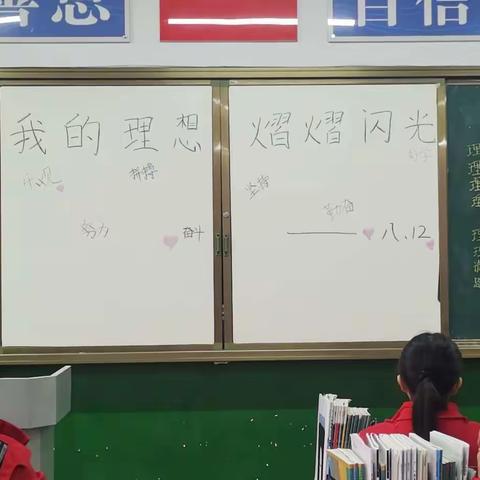 自信
我的理想 熠熠闪光
乐观
拼搏
好学
坚持
努力
奋斗
勤奋
——八.12
理
理
理
理
理
理